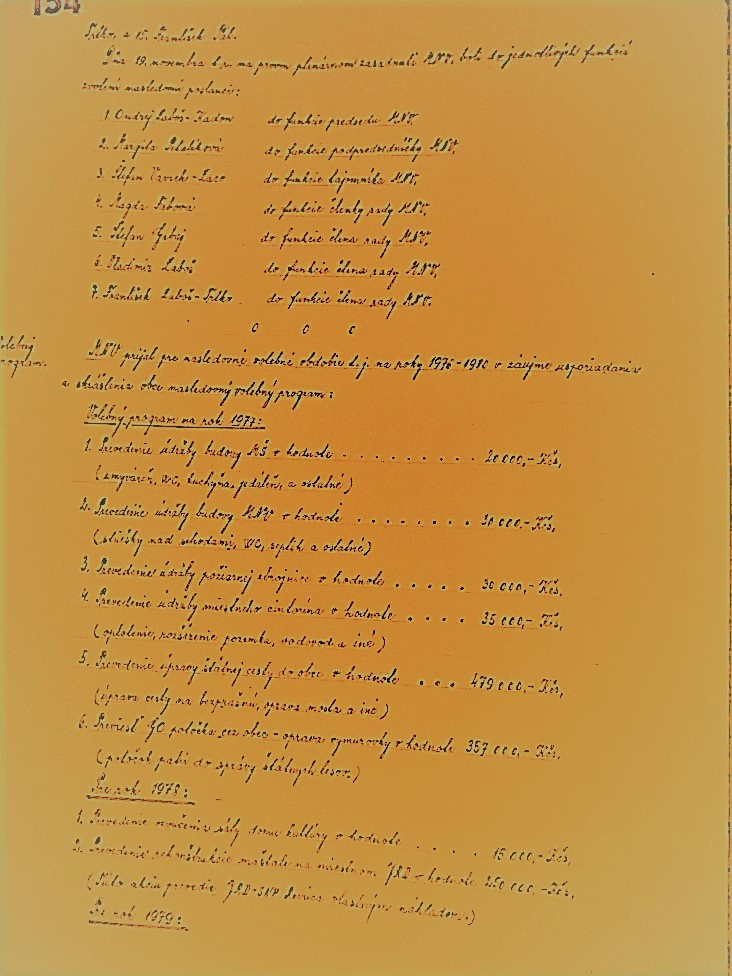 154
Trlko. a 15. František Gál.
Dňa 19. novembra t.r. na prvom plenárnom zasadnutí MNV, boli do jednotlivých funkcií
zvolení nasledovní poslanci:
1. Ondrej Laboš-Kadon do funkcie predsedu MNV.
2. Margita do funkcie podpredsedníčky MNV.
3. Štefan do funkcie tajomníka MNV.
4. Magda do funkcie členky rady MNV.
5. Štefan do funkcie člena rady MNV.
6. Vladimír Laboš do funkcie člena rady MNV.
7. František Laboš-Trlko. do funkcie člena rady MNV.
o o o
Volebný
program.
MNV prijal pre nasledovné volebné obdobie t.j. na roky 1976-1980 v záujme usporiadania
a skrášlenia obce nasledovný volebný program:
Volebný program na rok 1977:
1. Prevedenie údržby budovy MŠ v hodnote . . . . . . . . . 20 000,- Kčs,
(umyváreň, WC, kuchyňa, jedáleň, a ostatné)
2. Prevedenie údržby budovy MNV v hodnote . . . . . . . . 30 000,- Kčs,
(striešky nad schodami, WC, septik a ostatné)
3. Prevedenie údržby požiarnej zbrojnice v hodnote . . . . . 30 000,- Kčs,
4. Prevedenie údržby miestneho cintorína v hodnote . . . . 35 000,- Kčs,
(oplotenie, rozšírenie pozemku, vodovod a iné)
5. Prevedenie úpravy štátnej cesty do obce v hodnote . . . 479 000,- Kčs,
(úprava cesty na bezprašnú, oprava mosta a iné)
6. Previesť GO potôčka cez obec - oprava vymurovky v hodnote 357 000,- Kčs,
(potôček patrí do správy štátnych lesov.)
Pre rok 1978:
1. Prevedenie ozvučenia sály domu kultúry v hodnote . . . . 15 000,- Kčs,
2. Prevedenie rekonštrukcie maštale na miestnom JRD v hodnote 250 000,- Kčs,
(Túto akciu prevedie JRD-SNP vlastným nákladom.)
Pre rok 1979: